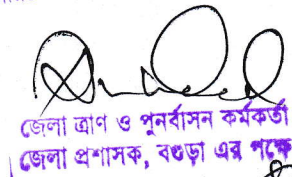 জেলা ত্রাণ ও পুনর্বাসন কর্মকর্তা
জেলা প্রশাসক, বগুড়া এর পক্ষে